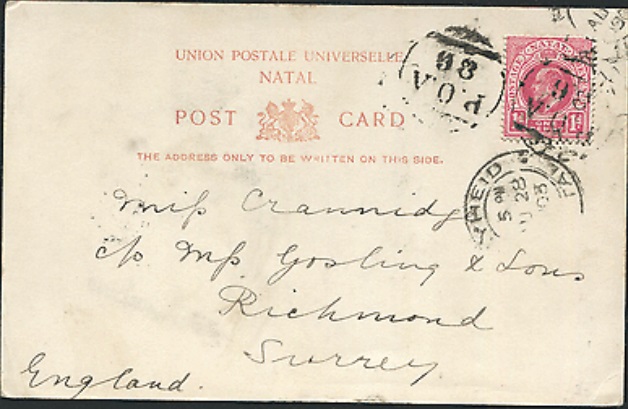 UNION POSTALE UNIVERSELLE
NATAL
POST CARD
THE ADDRESS ONLY TO BE WRITTEN ON THIS SIDE.
Miss Crannidg
c/o Mss Gosling & Sons
Richmond
Surrey
England.
P.O.A.
86
POSTAGE NATAL
1D 1D
HEID
5 PM
28
03